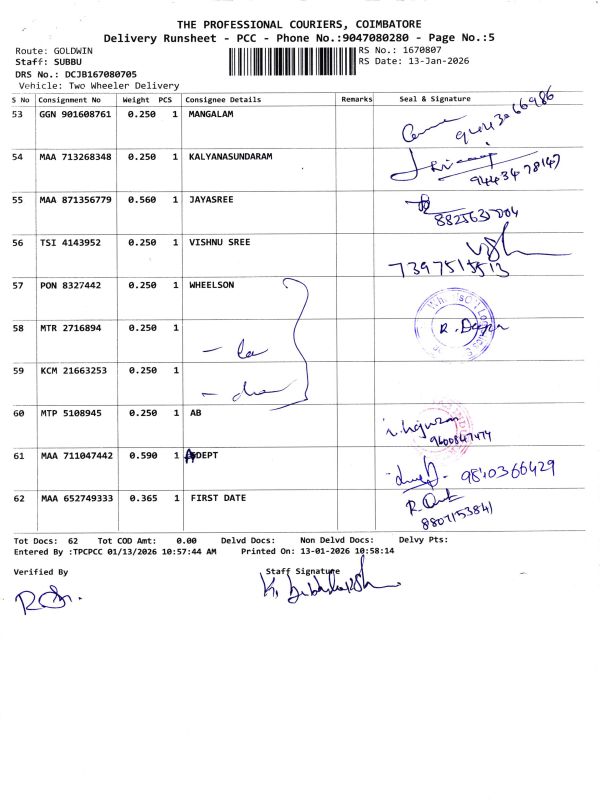 THE PROFESSIONAL COURIERS, COIMBATORE
Delivery Runsheet - PCC - Phone No.:9047080280 - Page No.:5
Route: GOLDWIN RS No.: 1670807
Staff: SUBBU RS Date: 13-Jan-2026
DRS No.: DCJB167080705
Vehicle: Two Wheeler Delivery
S No Consignment No Weight PCS Consignee Details Remarks Seal & Signature
53 GGN 901608761 0.250 1 MANGALAM
54 MAA 713268348 0.250 1 KALYANASUNDARAM
9443478147
55 MAA 871356779 0.560 1 JAYASREE
56 TSI 4143952 0.250 1 VISHNU SREE
7397515513
57 PON 8327442 0.250 1 WHEELSON
58 MTR 2716894 0.250 1
59 KCM 21663253 0.250 1
60 MTP 5108945 0.250 1 AB
9600847474
61 MAA 711047442 0.590 1 ADEPT
9840366429
62 MAA 652749333 0.365 1 FIRST DATE
8807153841
Tot Docs: 62 Tot COD Amt: 0.00 Delvd Docs: Non Delvd Docs: Delvy Pts:
Entered By :TPCPCC 01/13/2026 10:57:44 AM Printed On: 13-01-2026 10:58:14
Verified By Staff Signature